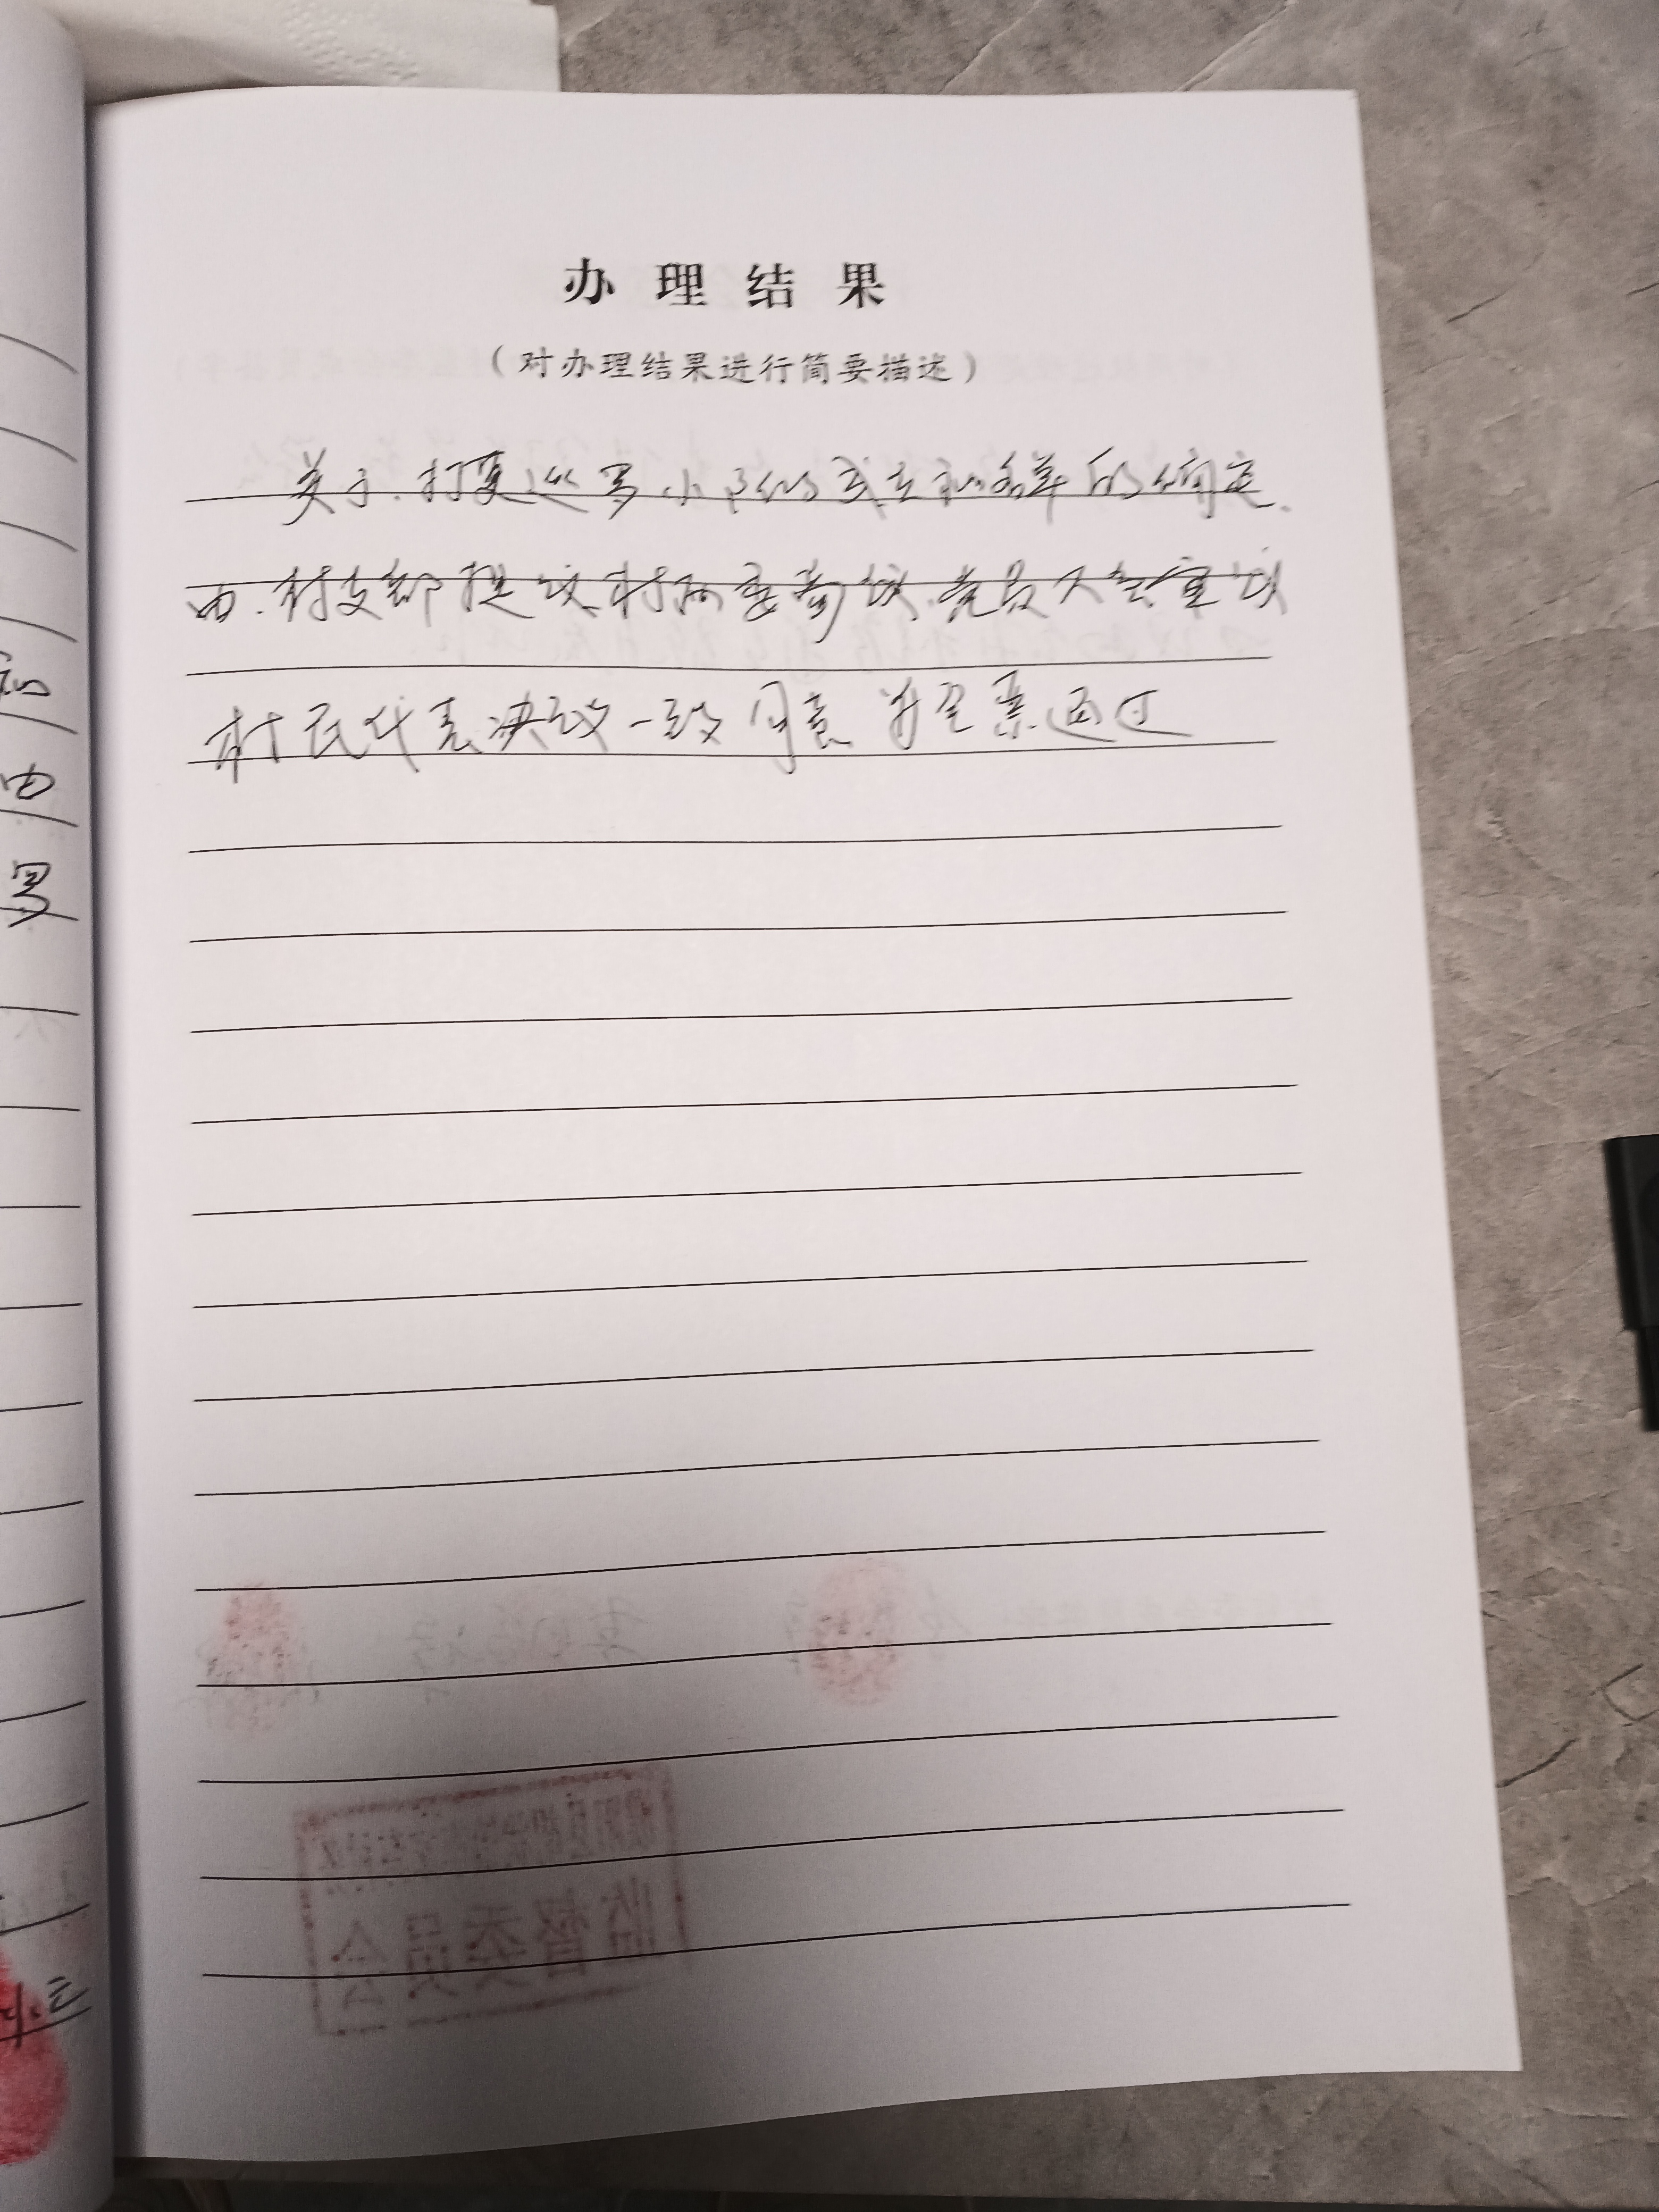 办理结果
（对办理结果进行简要描述）
关于.打更巡逻小队的成立和名单的确定.
由.村支部提议村两委商议.党员大会审议
村民代表决议一致同意 并全票通过
由
监督委员会